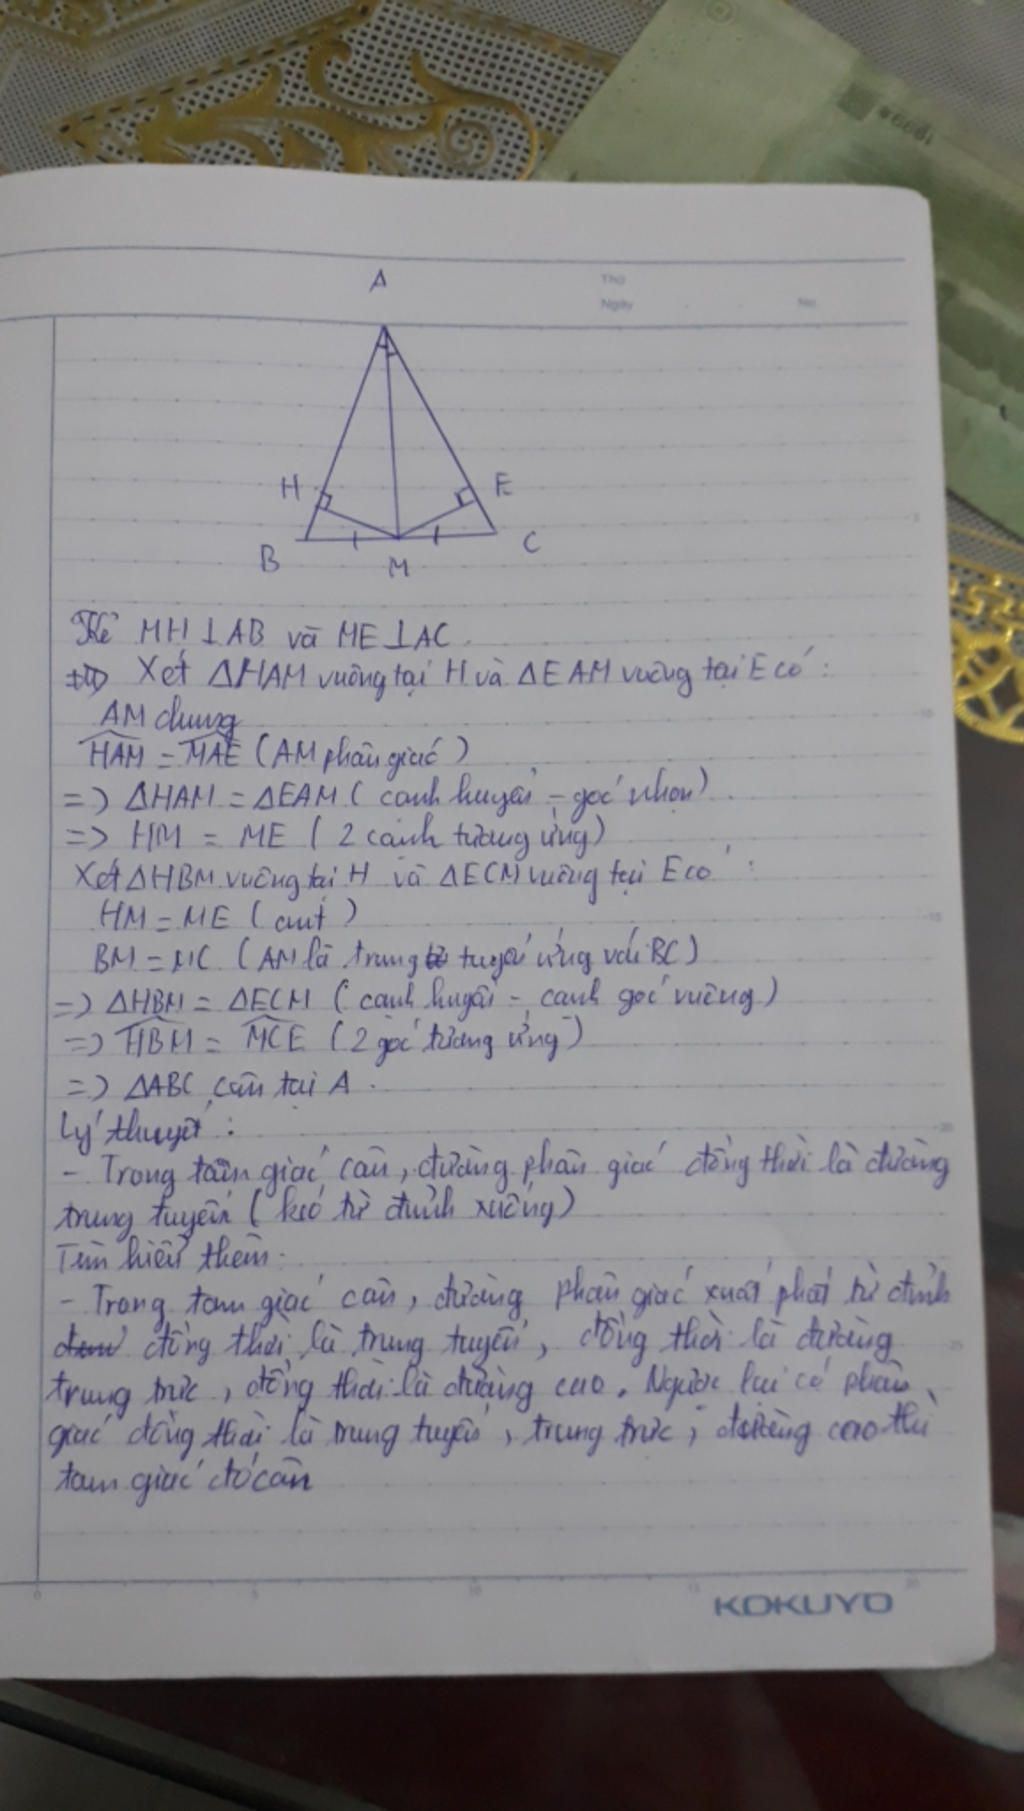 Thứ
Ngày No.
A
H E
B M C
Kẻ MH⊥AB và ME⊥AC.
Xét ΔHAM vuông tại H và ΔEAM vuông tại E có:
AM chung
HAM = MAE (AM phân giác)
=> ΔHAM = ΔEAM (cạnh huyền - góc nhọn)
=> HM = ME (2 cạnh tương ứng)
Xét ΔHBM vuông tại H và ΔECM vuông tại E có:
HM = ME (cmt)
BM = MC (AM là trung tuyến ứng với BC)
=> ΔHBM = ΔECM (cạnh huyền - cạnh góc vuông)
=> HBM = MCE (2 góc tương ứng)
=> ΔABC cân tại A.
Lý thuyết:
- Trong tam giác cân, đường phân giác đồng thời là đường
trung tuyến (kẻ từ đỉnh xuống)
Tìm hiểu thêm:
- Trong tam giác cân, đường phân giác xuất phát từ đỉnh
đồng thời là trung tuyến, đồng thời là đường
trung trực, đồng thời là đường cao. Ngược lại có phân
giác đồng thời là trung tuyến, trung trực, đường cao thì
tam giác đó cân
KOKUYO